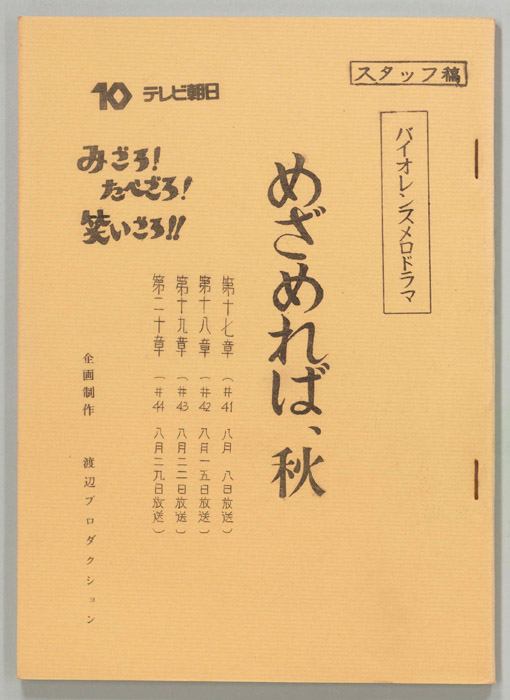 スタッフ稿
バイオレンスメロドラマ
めざめれば、秋
10 テレビ朝日
みごろ!
たべごろ!
笑いごろ!!
第十七章 (#41 八月 八日放送)
第十八章 (#42 八月一五日放送)
第十九章 (#43 八月二二日放送)
第二十章 (#44 八月二九日放送)
企画制作 渡辺プロダクション